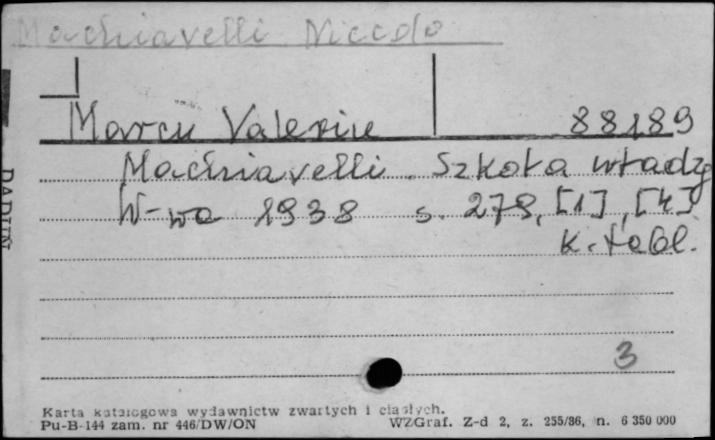 Machiavelli Niccolo
Marcu Valeriu 88189
Machiavelli. Szkoła władzy
W-wa 1938 s. 278, [1], [4]
k. tabl.
3
Karta katalogowa wydawnictw zwartych i ciągłych.
Pu-B-144 zam. nr 446/DW/ON WZGraf. Z-d 2, z. 255/86, n. 6 350 000